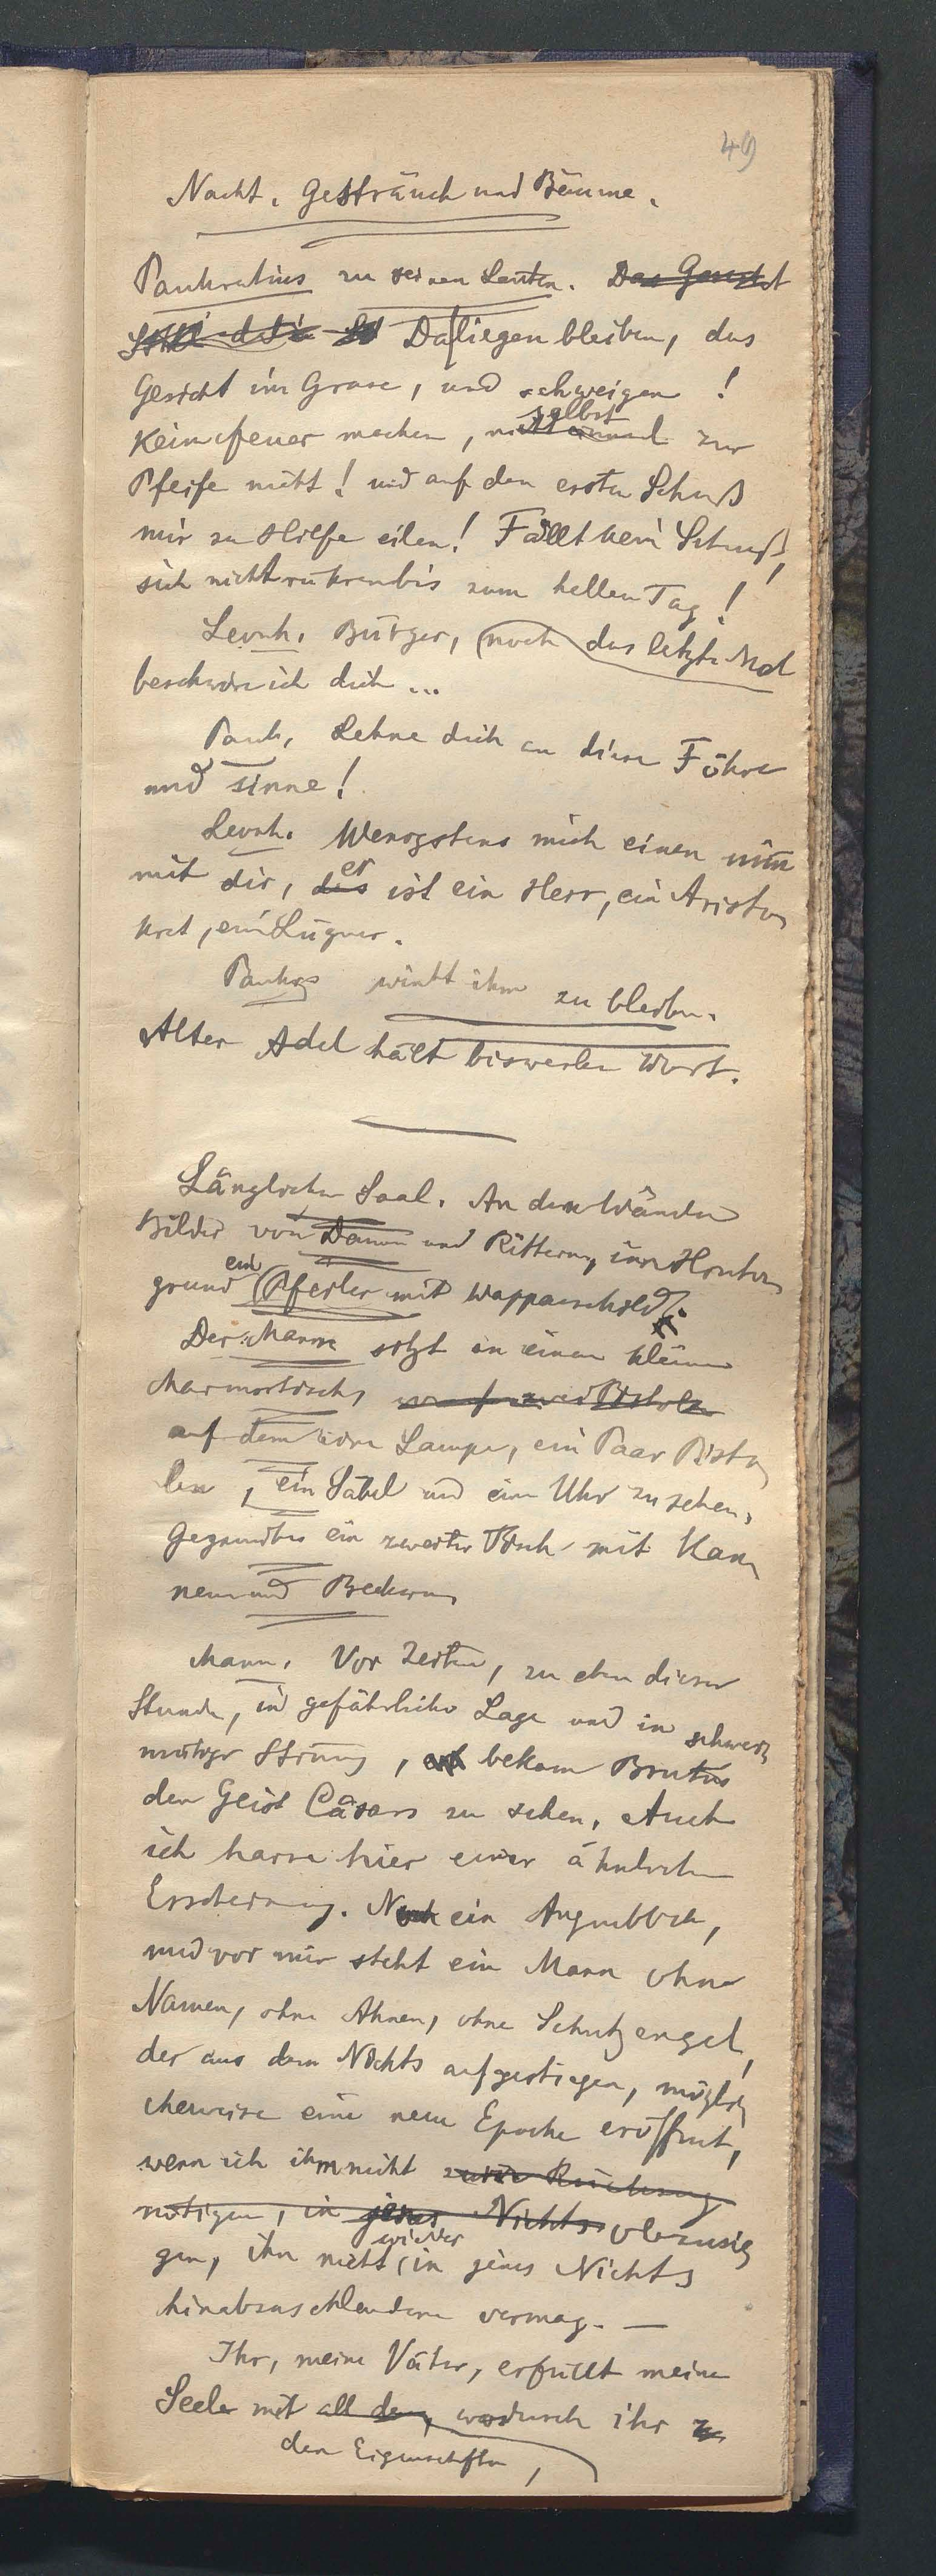 49
Nacht. Gesträuch und Bäume.
Pankratius zu seinen Leuten. Das Gesicht
Daliegen bleiben, das
Gesicht im Grase, und schweigen!
selbst
Kein Feuer machen, nicht einmal zur
Pfeife nicht! und auf den ersten Schuß
mir zu Hilfe eilen! Fällt kein Schuß,
sich nicht rühren bis zum hellen Tag!
Leonh. Bürger, noch das letzte Mal
beschwöre ich dich ...
Pank. Lehne dich an diese Föhre
und sinne!
Leonh. Wenigstens mich einen nim̄
er
mit dir, dies ist ein Herr, ein Aristo
krat, ein Lügner.
Pankr. winkt ihm zu bleiben.
Alter Adel hält bisweilen Wort.
Länglicher Saal. An den Wänden
Bilder von Damen und Rittern, im Hinter
ein
grund Pfeiler mit Wappenschild.
Der Mann sitzt an einem kleinen
Marmortisch, worauf zwei Pistolen
auf dem eine Lampe, ein Paar Pisto
len, ein Säbel und eine Uhr zu sehen.
Gegenüber ein zweiter Tisch mit Kan
nen und Bechern
Mann. Vor Zeiten, zu eben dieser
Stunde, in gefährlicher Lage und in schwer
mütiger Stimmung, bekam Brutus
den Geist Cäsars zu sehen. Auch
ich harre hier einer ähnlichen
Erscheinung. Noch ein Augenblick,
und vor mir steht ein Mann ohne
Namen, ohne Ahnen, ohne Schutzengel,
der aus dem Nichts aufgestiegen, möglich
cherweise eine neue Epoche eröffnet,
wenn ich ihm nicht zur Rückkehr
nötigen, in jenes Nichts obzusie
wieder
gen, ihn nicht in jenes Nichts
hinabzuschleudern vermag. —
Ihr, meine Väter, erfüllt meine
Seele mit all dem, wodurch ihr zu
den Eigenschaften,